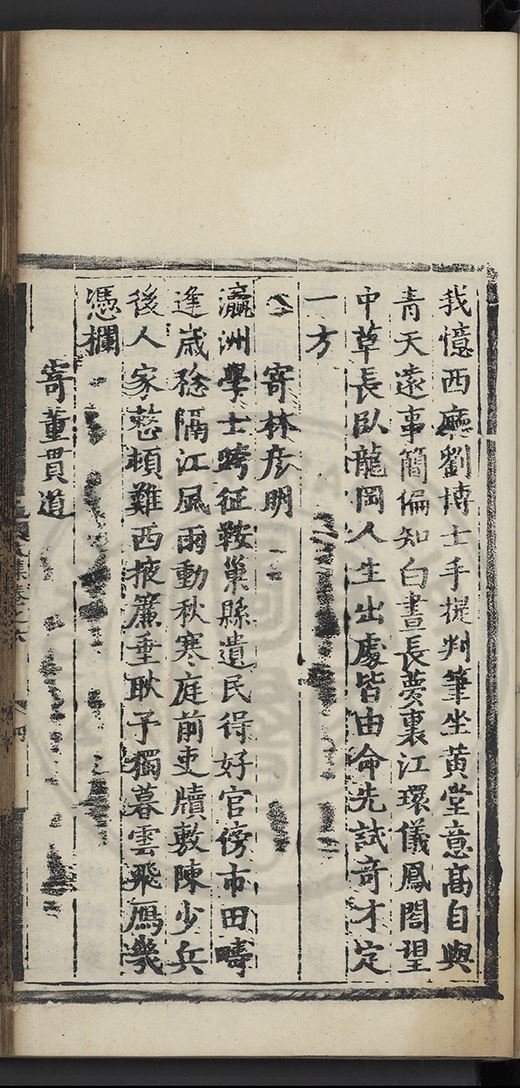 我憶西廳劉博士手提判筆坐黃堂意髙自與
青天遠事簡偏知白晝長夢裏江環儀鳳閣望
中草長臥龍岡人生出處皆由命先試竒才定
一方
寄林彥明
瀛洲學士跨征鞍巢縣遺民得好官傍市田疇
逢歲稔隔江風雨動秋寒庭前吏牘敷陳少兵
後人家整頓難西掖簾垂耿予獨暮雲飛鴈㡬
憑欄
寄董貫道
集卷之六
四